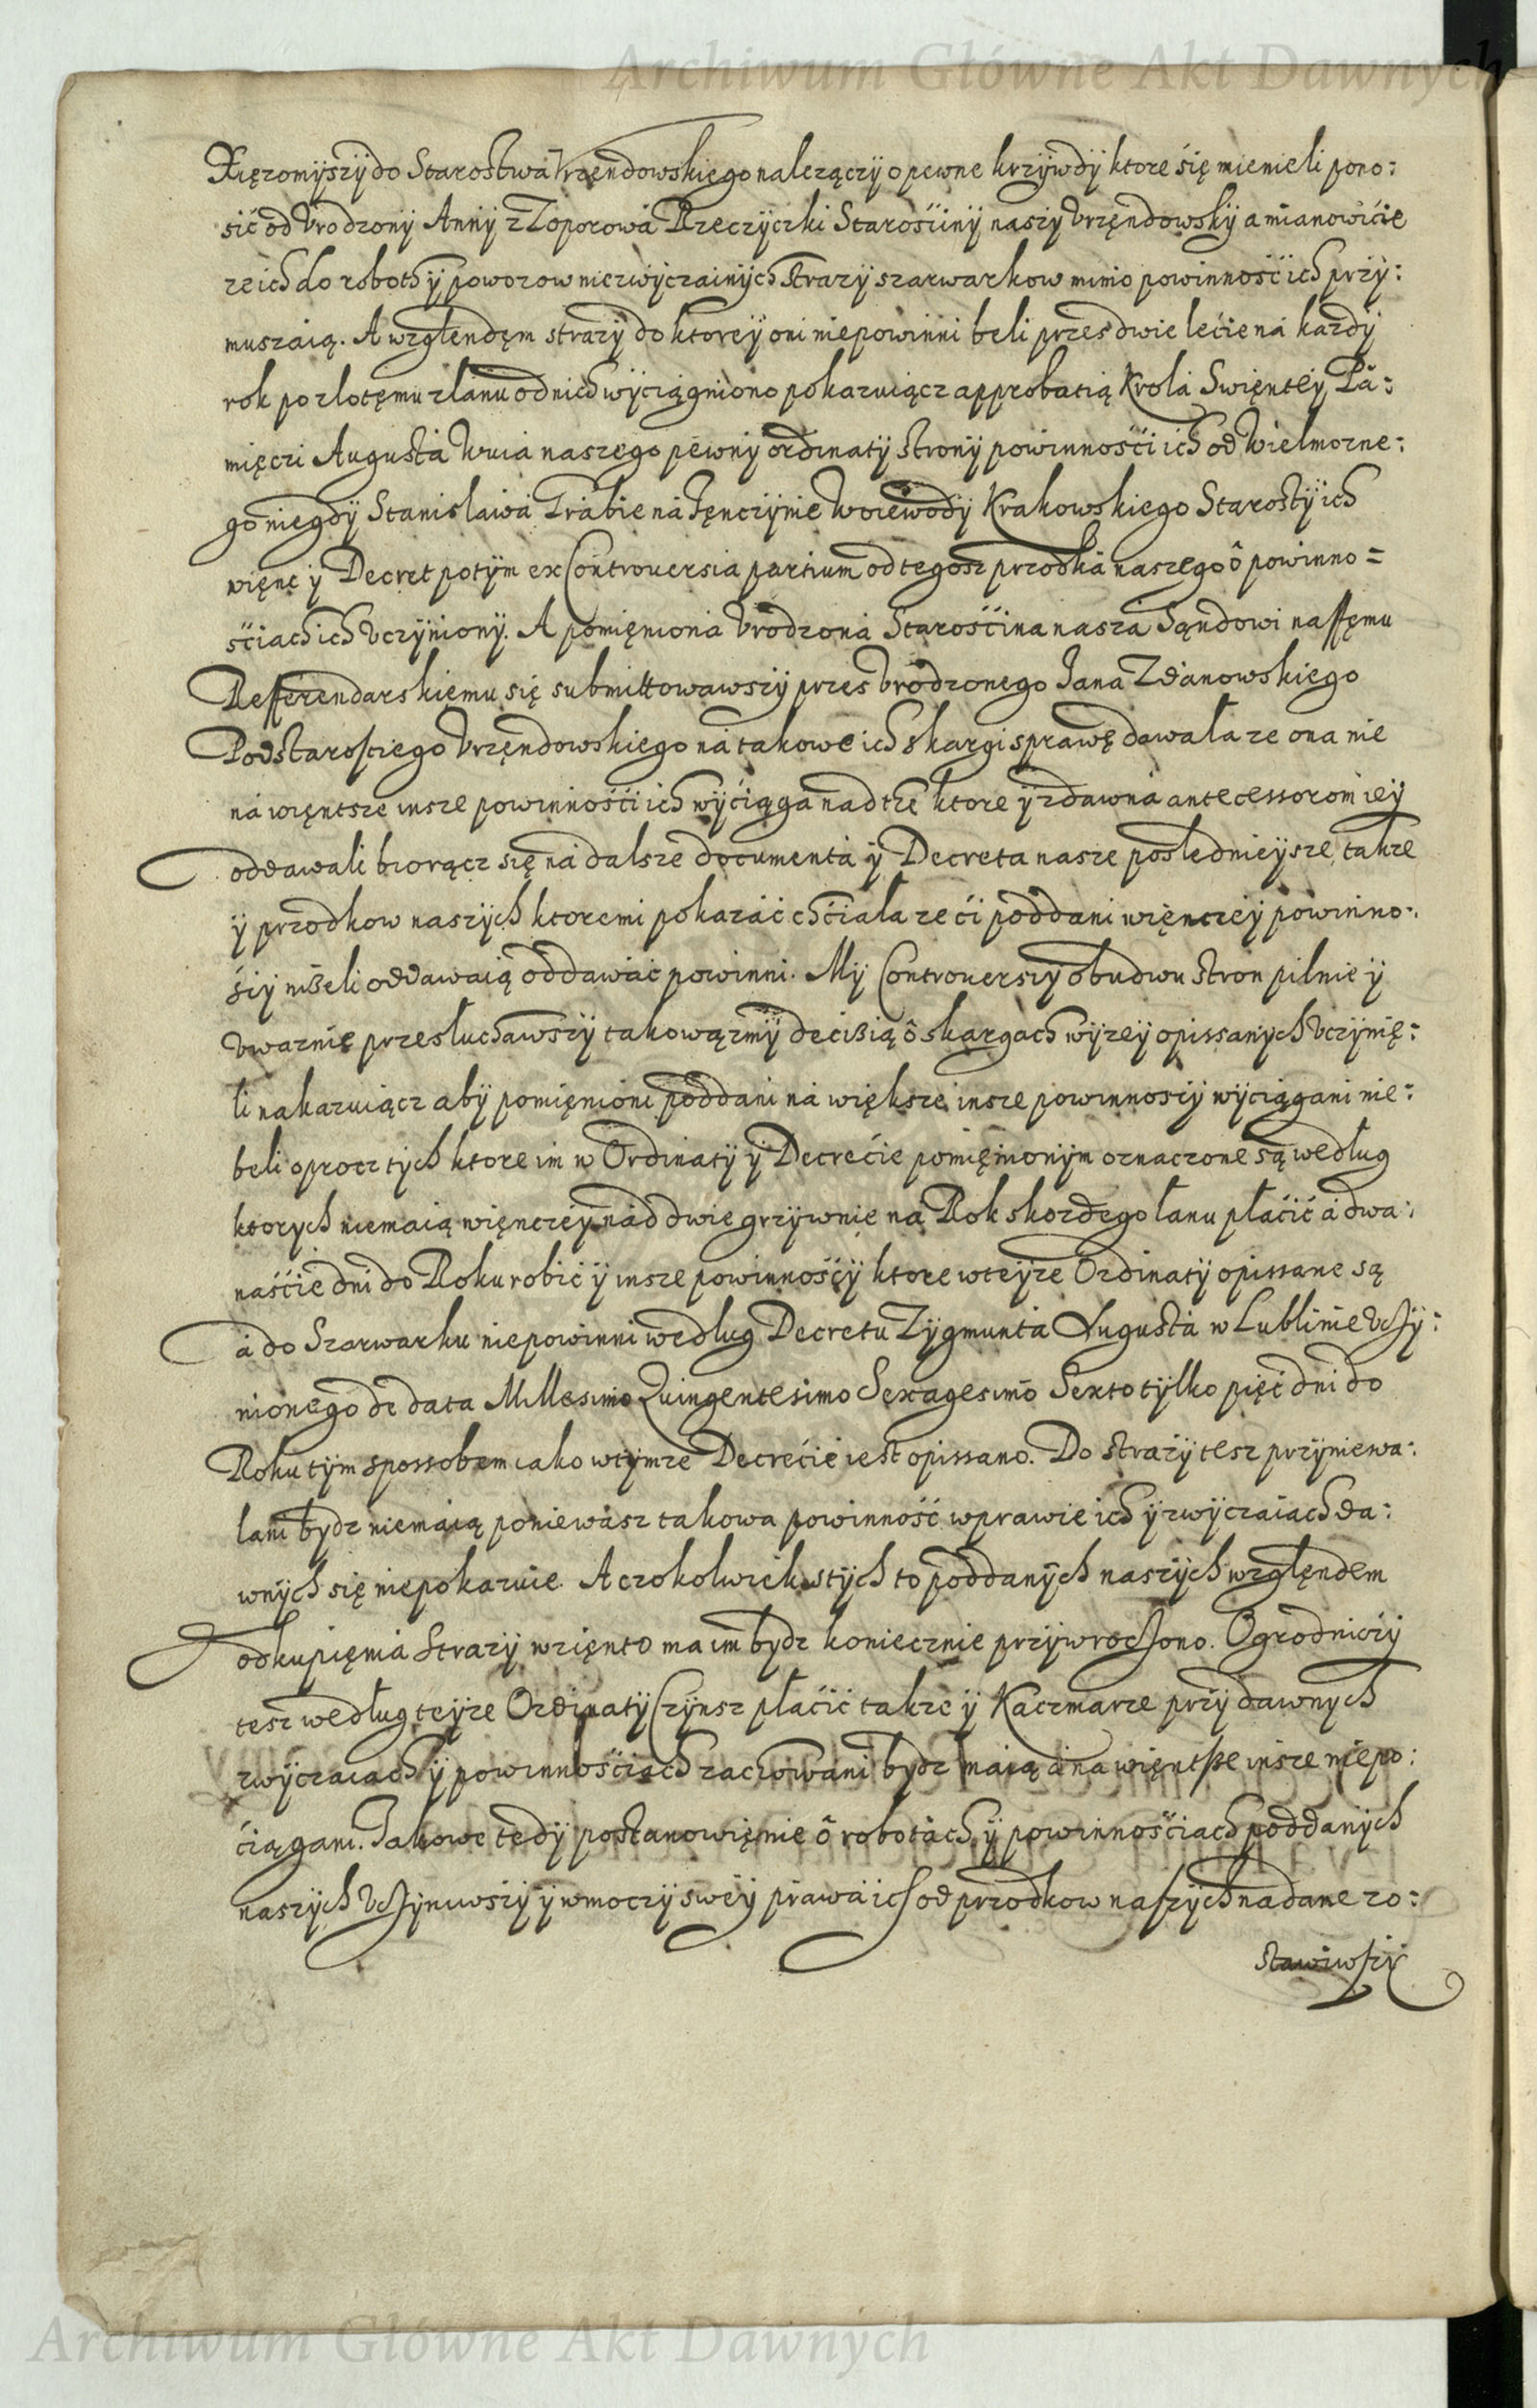 Archiwum Główne Akt Dawnych
Xięzomyszy do Starostwa Vrzendowskiego nalezączy o pewne krzywdy ktore się mienieli pono:
sić od Vrodzony Anny z Toporowa Rzeczyczki Starosciny naszy Vrzędowsky a mianowicie
ze ich do roboth y powozow niezwyczainych Strazy szarwarkow mimo powinność ich przy:
muszaią. A względęm strazy do ktorey oni niepowinni beli przes dwie lecie na kazdy
rok po zlotęmu z lanu od nich wyciągniono pokazuiącz approbatią Krola Swiętey Pa:
mięczi Augusta Wuia naszego pewny ordinaty strony powinności ich od Wielmozne:
go niegdy Stanislawa Grabie na Tęnczynie Woiewody Krakowskiego Starosty ich
więnc y Decret potym ex Controuersia partium od tegosz przodka naszego o powinno=
ściach ich vczyniony. A pomięniona Vrodzona Starościna nasza Sąndowi naszęmu
Refferendarskiemu się submittowawszy przes Vrodzonego Jana Zdanowskiego
Podstarosciego Vrzęndowskiego na takowe ich skargi sprawę dawała ze ona nie
na więntsze insze powinności ich wyciąga nad the ktore y zdawna antecessorom iey
oddawali biorącz się na dalsze documenta y Decreta nasze poslednieysze, takze
y przodkow naszych ktoremi pokazać chciała ze ci poddani więnczey powinno:
śiy niżeli oddawaią oddawać powinni. My Controuersiy obudwu stron pilnie y
vwaznie przesłuchawszy takowązmy decisią o skargach wyzey opissanych vczynię:
li nakazuiącz aby pomięnioni poddani na większe insze powinnosiy wyciągani nie:
beli oprocz tych ktore im w Ordinaty y Decrećie pomięnionym oznaczone są według
ktorych niemaią więnczey nad dwie grzywnie na Rok skozdego łanu płacić a dwa:
naście dni do Roku robić y insze powinnośćy ktore wteyze Ordinaty opissane są
a do Szarwarku niepowinni według Decretu Zygmunta Augusta w Lublinie vczy:
nionego de data Millesimo Quingentesimo Sexagesimo Sexto tylko pięć dni do
Roku tym spossobem iako wtymze Decrećie iest opissano. Do strazy tesz przyniewa:
lani bydz niemaią poniewasz takowa powinność wprawie ich y zwyczaiach da:
wnych się niepokazuie. A czokolwiek stych to poddanych naszych względem
odkupięnia Strazy wzięnto ma im bydz koniecznie przywroczono. Ogrodniczy
tesz według teyze Ordinaty Czynsz płacić takze y Kaczmarze przy dawnych
zwyczaiach y powinnościach zachowani bydz maią a na więntsze insze niepo:
ciągani. Takowe tedy postanowięnie o robotach y powinnościach poddanych
naszych vczyniwszy y wmoczy swey prawa ich od przodkow naszych nadane zo:
stawiwszy
Archiwum Główne Akt Dawnych